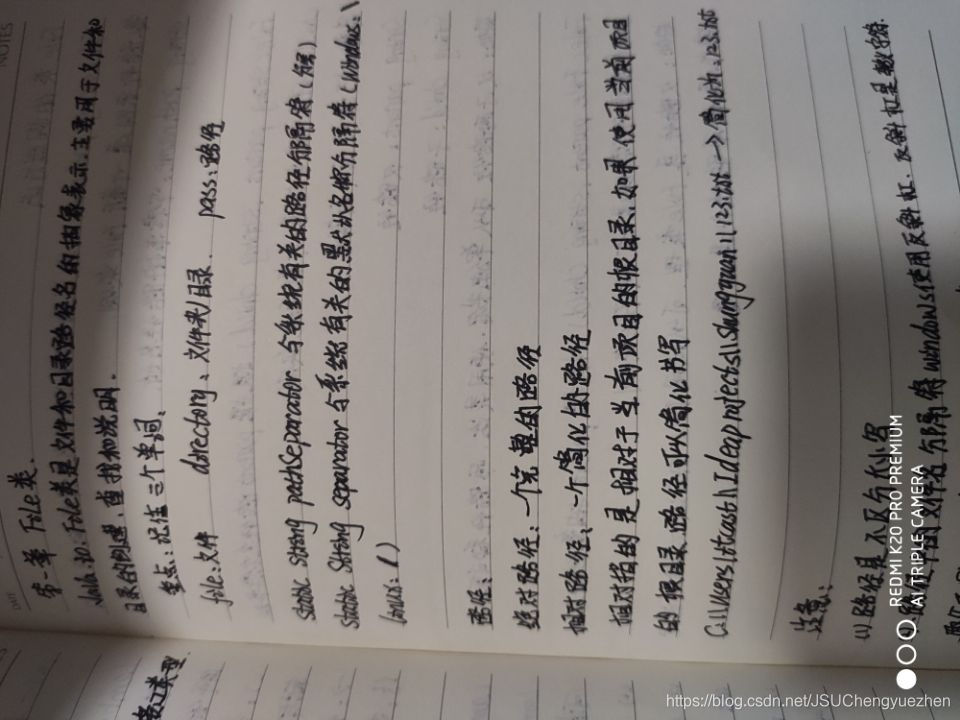 第一章 File类.
Java.io.File类是文件和目录路径名的抽象表示.主要用于文件和
目录的创建、查找和说明.
重点:记住三个单词.
file:文件 directory:文件夹/目录. pass:路径
static String pathSeparator 与系统有关的路径分隔符
static String separator 与系统有关的默认名称分隔符(windows:\
linux:/)
路径:
绝对路径:一个完整的路径
相对路径:一个简化的路径
相对指的是相对于当前项目的根目录.如果使用当前项目
的根目录路径可以简化书写
C:\\Users\\itcast\\IdeaProjects\\shungyuan\\123.txt → 简化为:123.txt
注意:
(1)路径是不区分大小写
路径中的文件名分隔符windows使用反斜杠.反斜杠是转义符.
REDMI K20 PRO PREMIUM
AI TRIPLE CAMERA
https://blog.csdn.net/JSUChengyuezhen